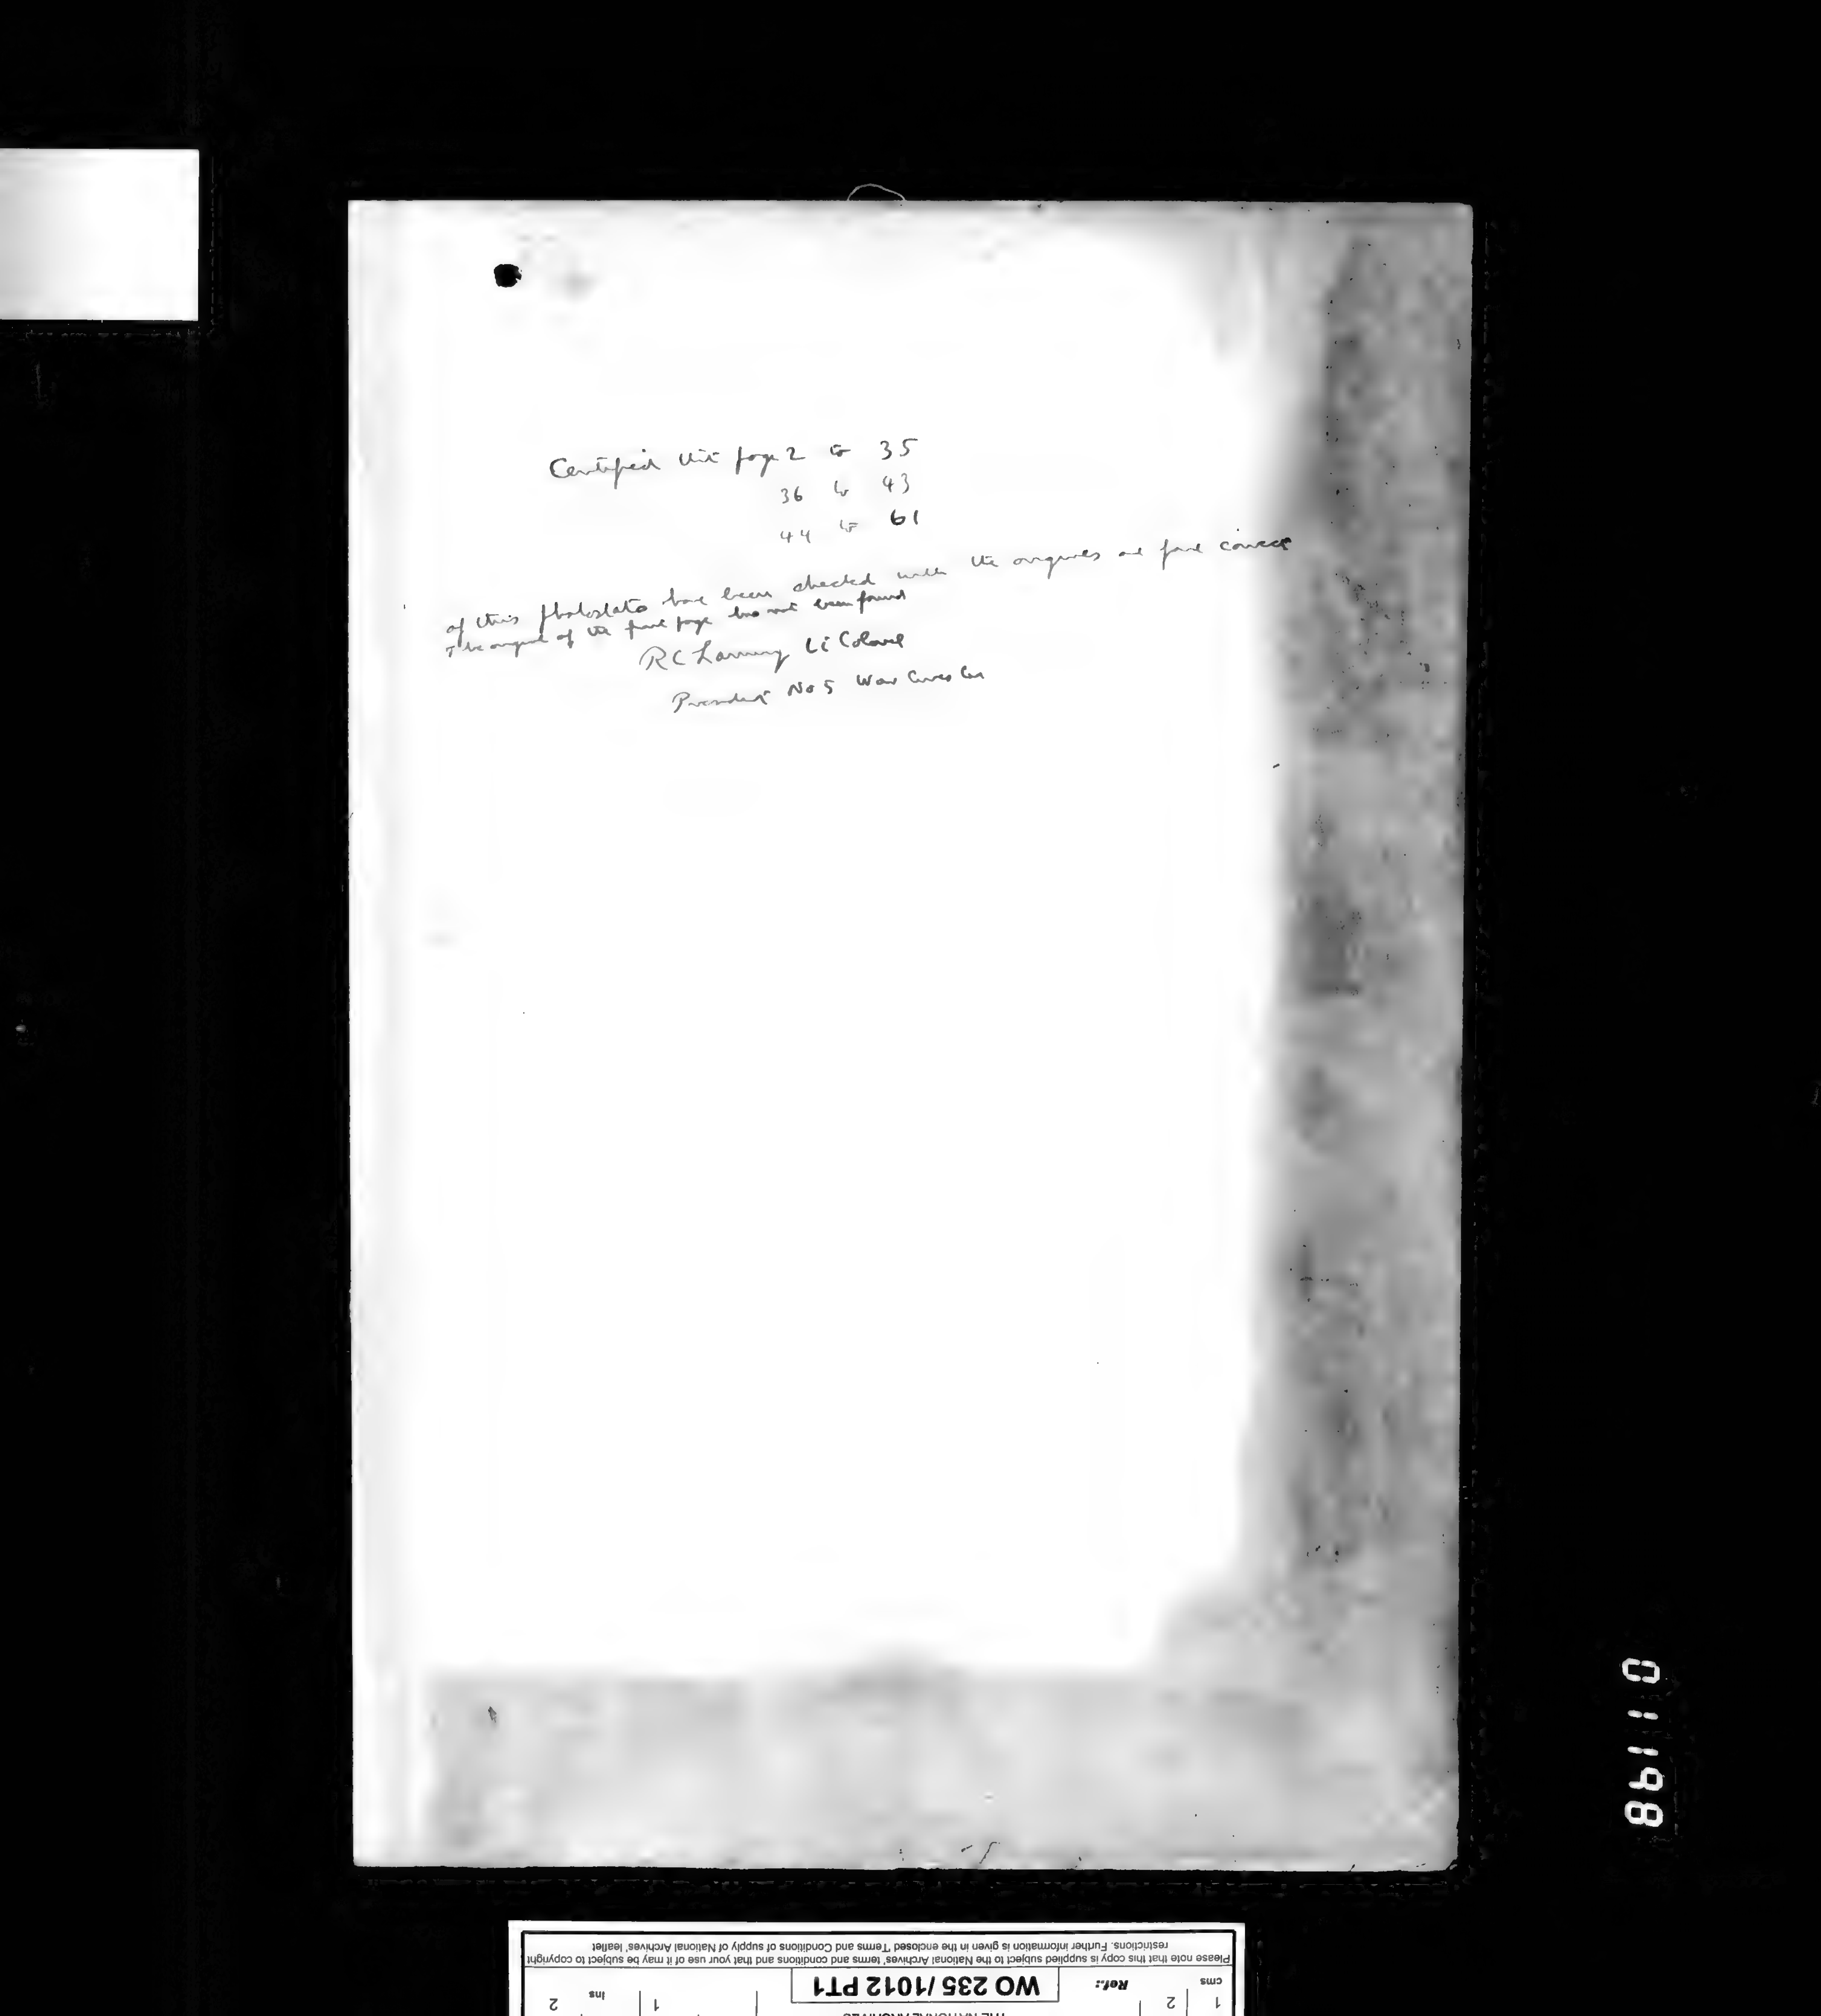 Certified that page 2 to 35
36 to 43
44 to 61
of this photostats have been checked with the originals and found correct
The original of the first page has not been found
R C Laming Lt Colonel
President No 5 War Crimes Court
011198
Please note that this copy is supplied subject to the National Archives' terms and conditions and that your use of it may be subject to copyright
restrictions. Further information is given in the enclosed 'Terms and Conditions of supply of National Archives' leaflet
cms 1 2 Ref.: WO 235 / 1012 PT1 1 ins 2
THE NATIONAL ARCHIVES